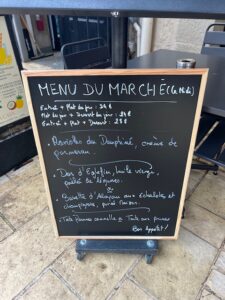 MENU DU MARCHÉ (Le Midi)
Entrée + Plat du jour : 24 €
Plat du jour + Dessert du jour : 24 €
Entrée + Plat + Dessert : 28 €
. Ravioles du Dauphiné, crème de
parmesan.
. Dos d'Eglefin, huile vierge,
poêlé de légumes.
ou
. Bavette d'Aloyau aux échalotes et
champignons, purée maison.
. Tarte pommes cannelle ou Tarte aux prunes
Bon Appétit !